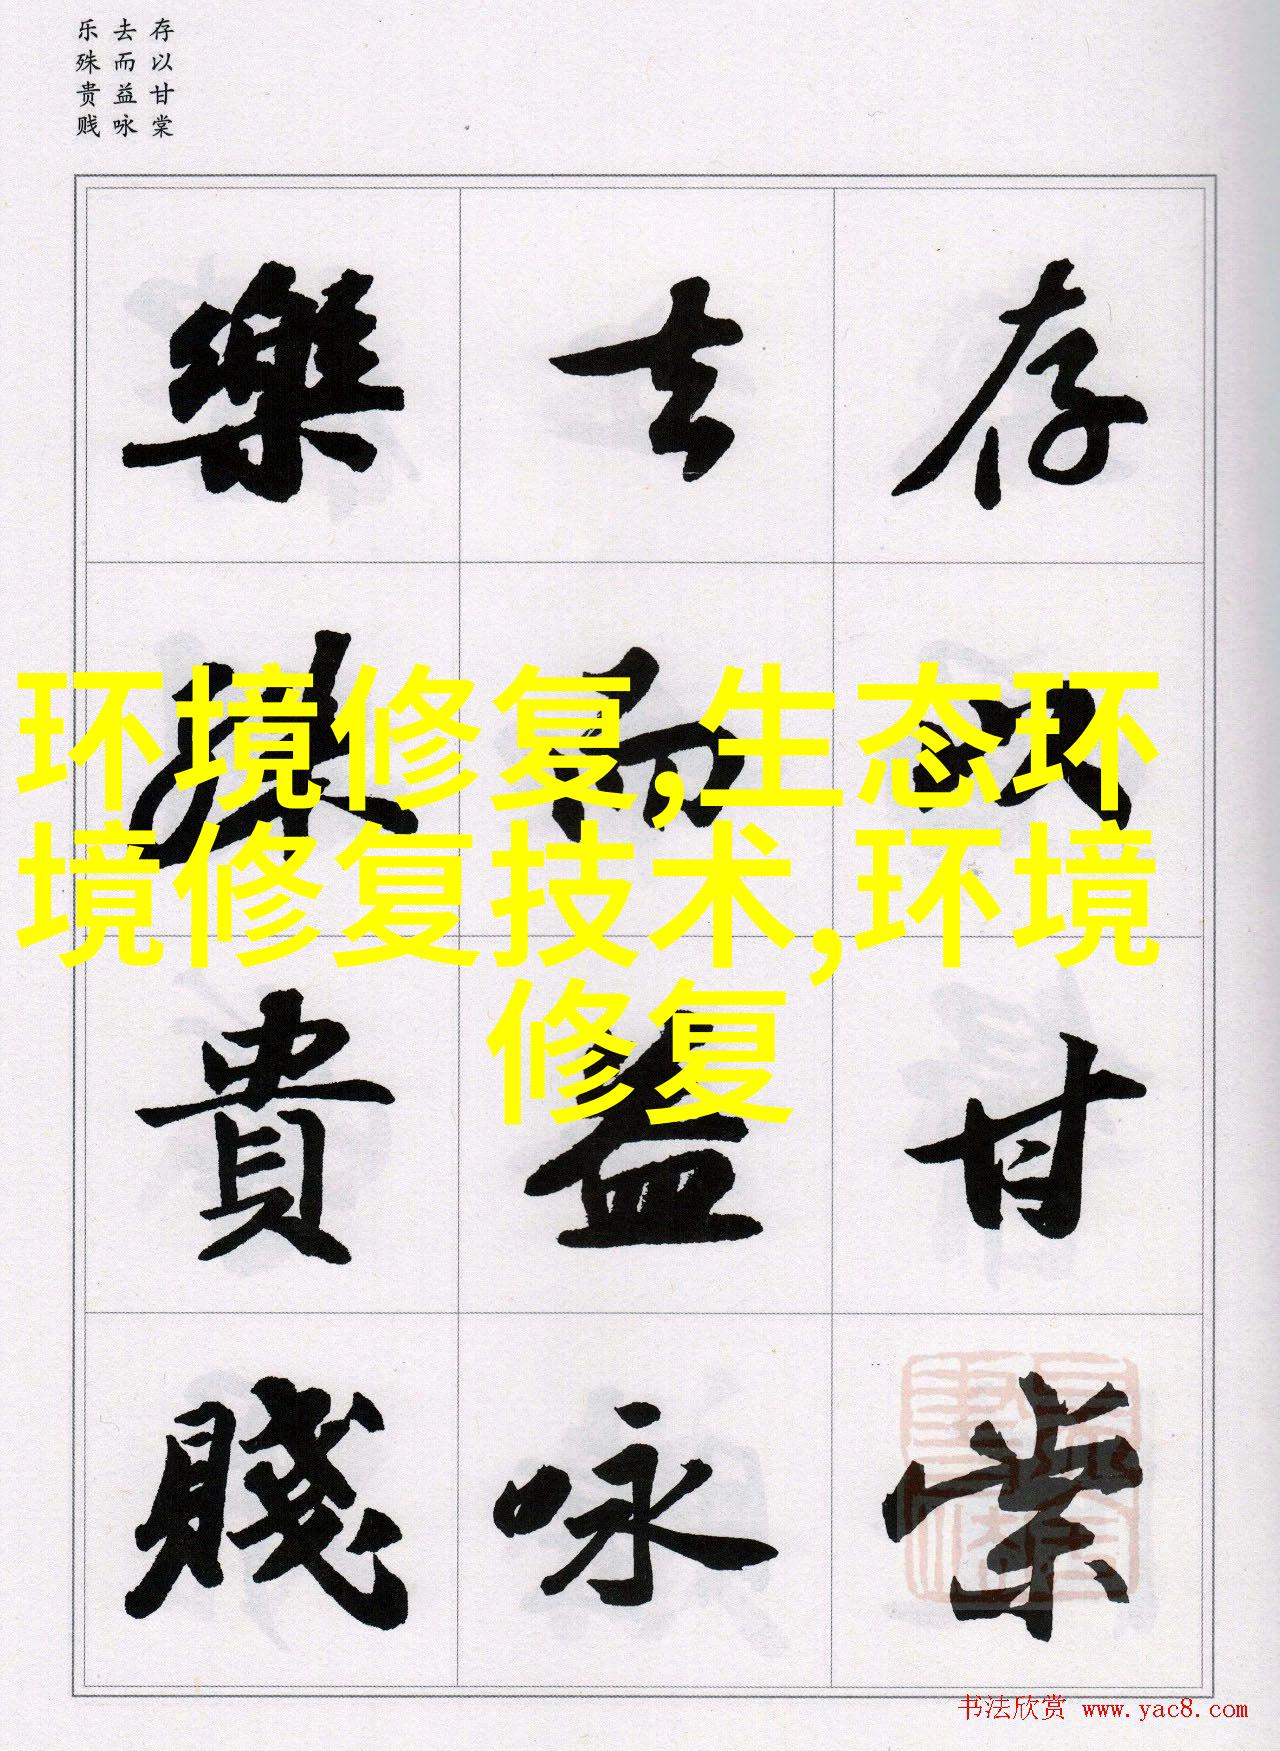 存以甘棠
去而益咏
乐殊贵贱
存以甘棠
去而益咏
樂殊貴賤
环境修复,生态环
境修复技术,环境
修复
书法欣赏 www.yac8.com